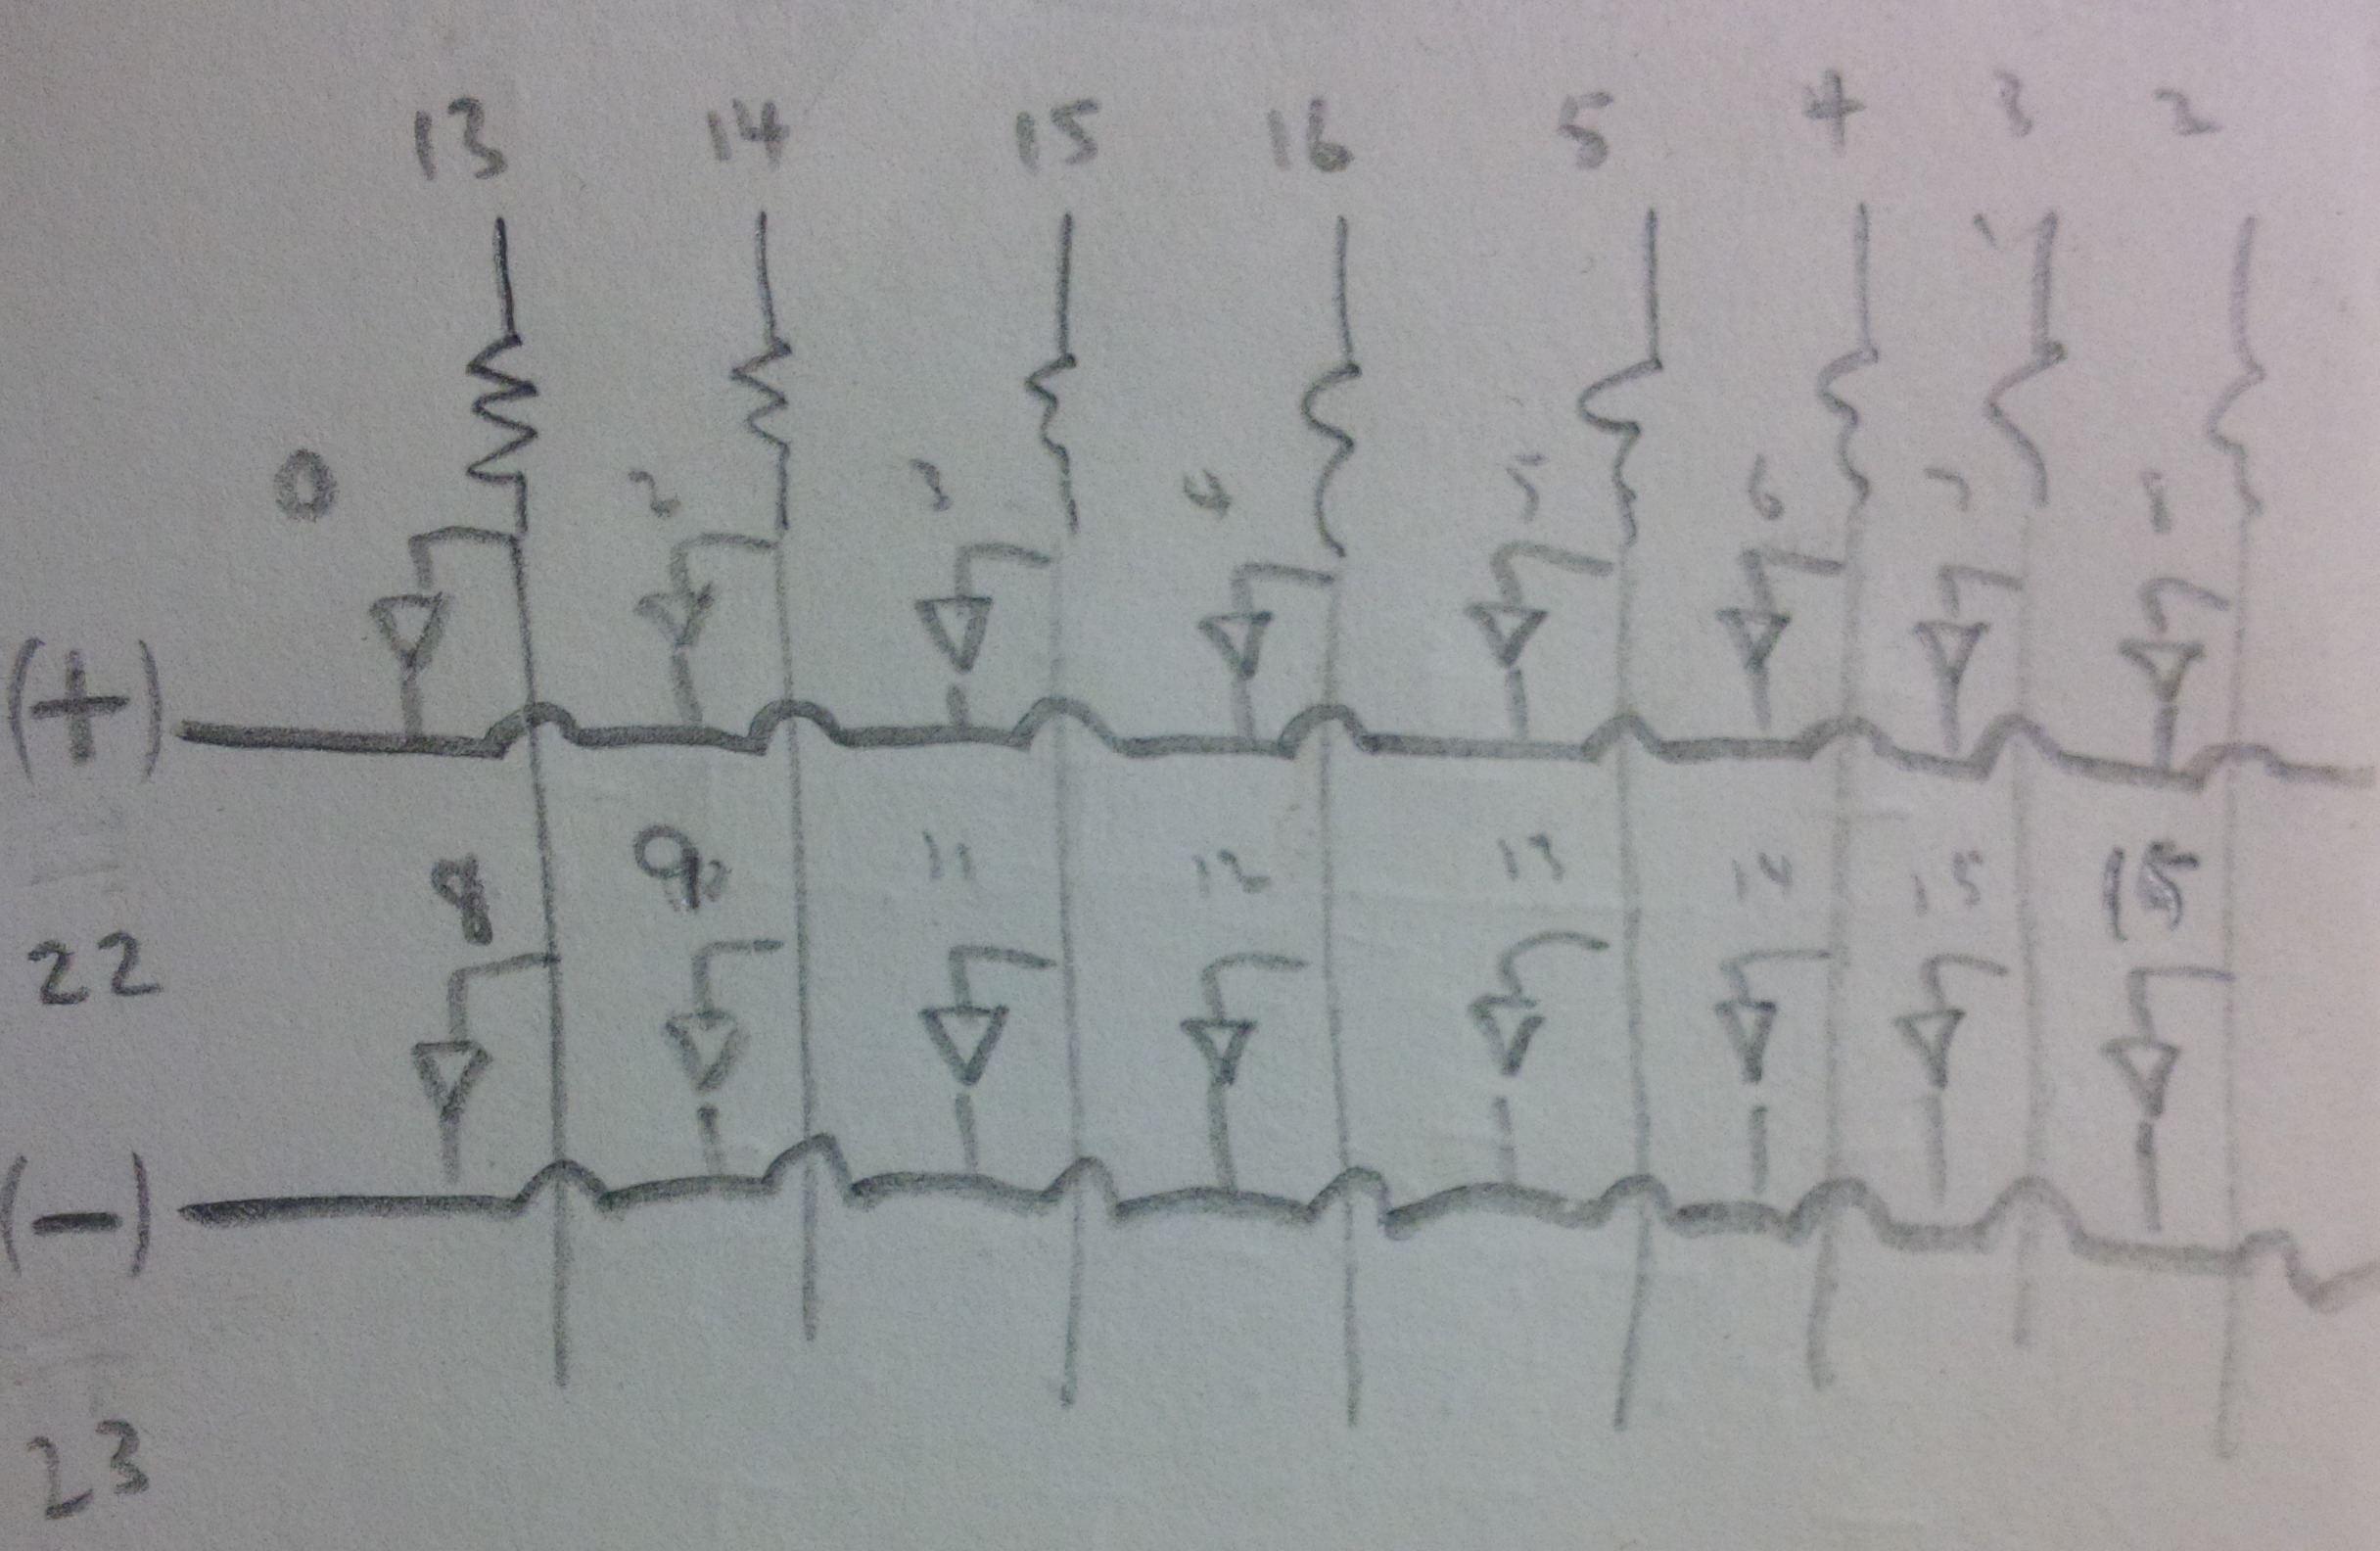 13 14 15 16 5 4 3 2
0 2 3 4 5 6 7 8
(+)
8 9 11 12 13 14 15 15
22
(-)
23